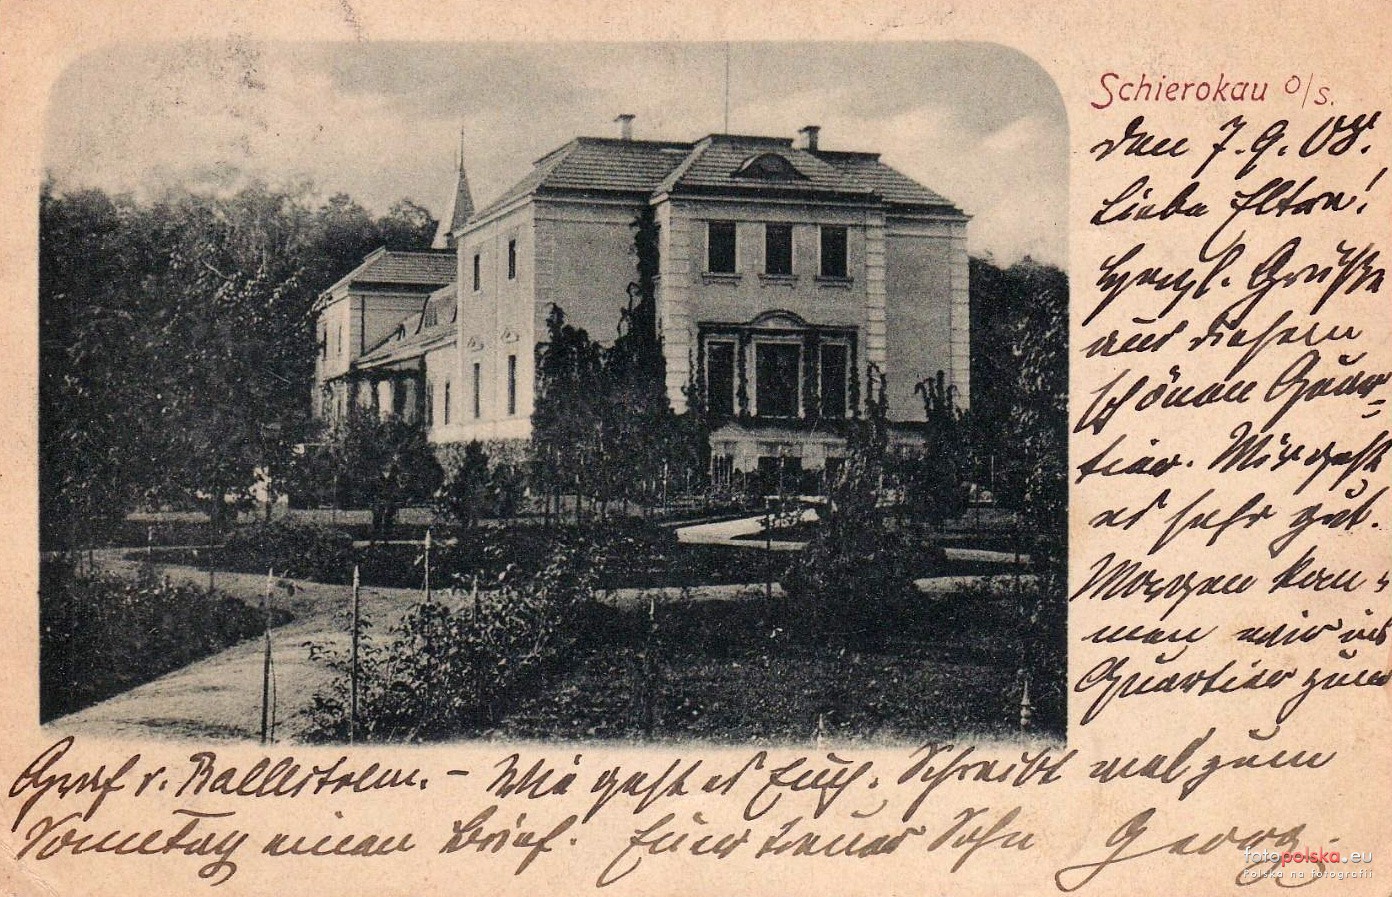 Schierokau O/S.
den 7.9.08.
Liebe Eltern!
Herzl. Grüße
aus diesem
schönen Quar-
tier. Mir geht
es sehr gut.
Morgen kom-
men wir ins
Quartier zum
Graf v. Ballestrem. – Wie geht es Euch. Schreibt mal zum
Sonntag einen Brief. Euer treuer Sohn Georg.
fotopolska.eu
Polska na fotografii